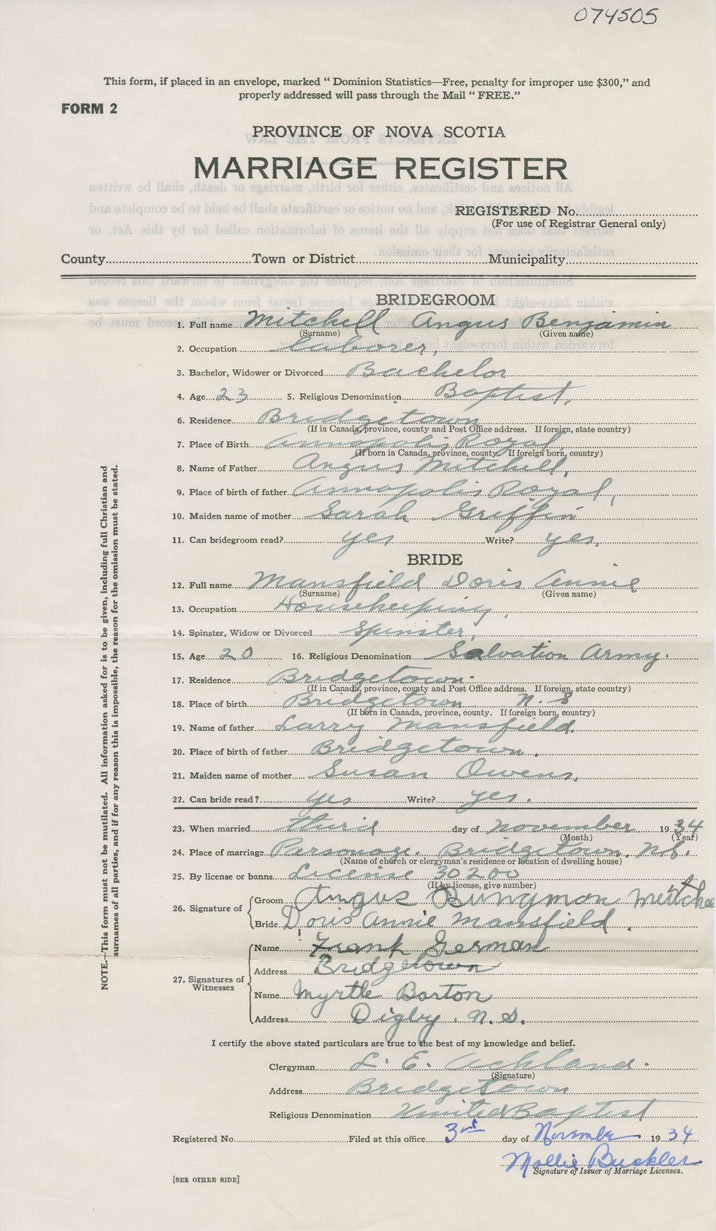 074505
This form, if placed in an envelope, marked "Dominion Statistics—Free, penalty for improper use $300," and
properly addressed will pass through the Mail "FREE."
FORM 2
PROVINCE OF NOVA SCOTIA
MARRIAGE REGISTER
REGISTERED No.
(For use of Registrar General only)
County Town or District Municipality
BRIDEGROOM
1. Full name Mitchell Angus Benjamin
(Surname) (Given name)
2. Occupation Laborer,
3. Bachelor, Widower or Divorced Bachelor
4. Age 23 5. Religious Denomination Baptist,
6. Residence Bridgetown
(If in Canada, province, county and Post Office address. If foreign, state country)
7. Place of Birth Annapolis Royal
(If born in Canada, province, county. If foreign born, country)
8. Name of Father Angus Mitchell,
9. Place of birth of father Annapolis Royal,
10. Maiden name of mother Sarah Griffin
11. Can bridegroom read? yes Write? yes.
BRIDE
12. Full name Mansfield Doris Annie
(Surname) (Given name)
13. Occupation Housekeeping,
14. Spinster, Widow or Divorced Spinster,
15. Age 20 16. Religious Denomination Salvation Army.
17. Residence Bridgetown.
(If in Canada, province, county and Post Office address. If foreign, state country)
18. Place of Birth Bridgetown N.S
(If born in Canada, province, county. If foreign born, country)
19. Name of father Larry Mansfield.
20. Place of birth of father Bridgetown.
21. Maiden name of mother Susan Owens,
22. Can bride read? yes Write? yes.
23. When married third day of november 1934
(Month) (Year)
24. Place of marriage Parsonage. Bridgetown. N.S.
(Name of church or clergyman's residence or location of dwelling house)
25. By license or banns License 30200
(If by license, give number)
26. Signature of Groom Angus Bungman Mitche
Bride Doris Annie Mansfield.
27. Signatures of Witnesses
Name Frank German
Address Bridgetown
Name Myrtle Barton
Address Digby. N.S.
I certify the above stated particulars are true to the best of my knowledge and belief.
Clergyman L. E. Ackland.
(Signature)
Address Bridgetown
Religious Denomination United Baptist
Registered No. Filed at this office 3rd day of November 1934
Mollie Buckler
Signature of Issuer of Marriage Licenses.
[SEE OTHER SIDE]
NOTE.—This form must not be mutilated. All information asked for is to be given, including full Christian and
surnames of all parties, and if for any reason this is impossible, the reason for the omission must be stated.